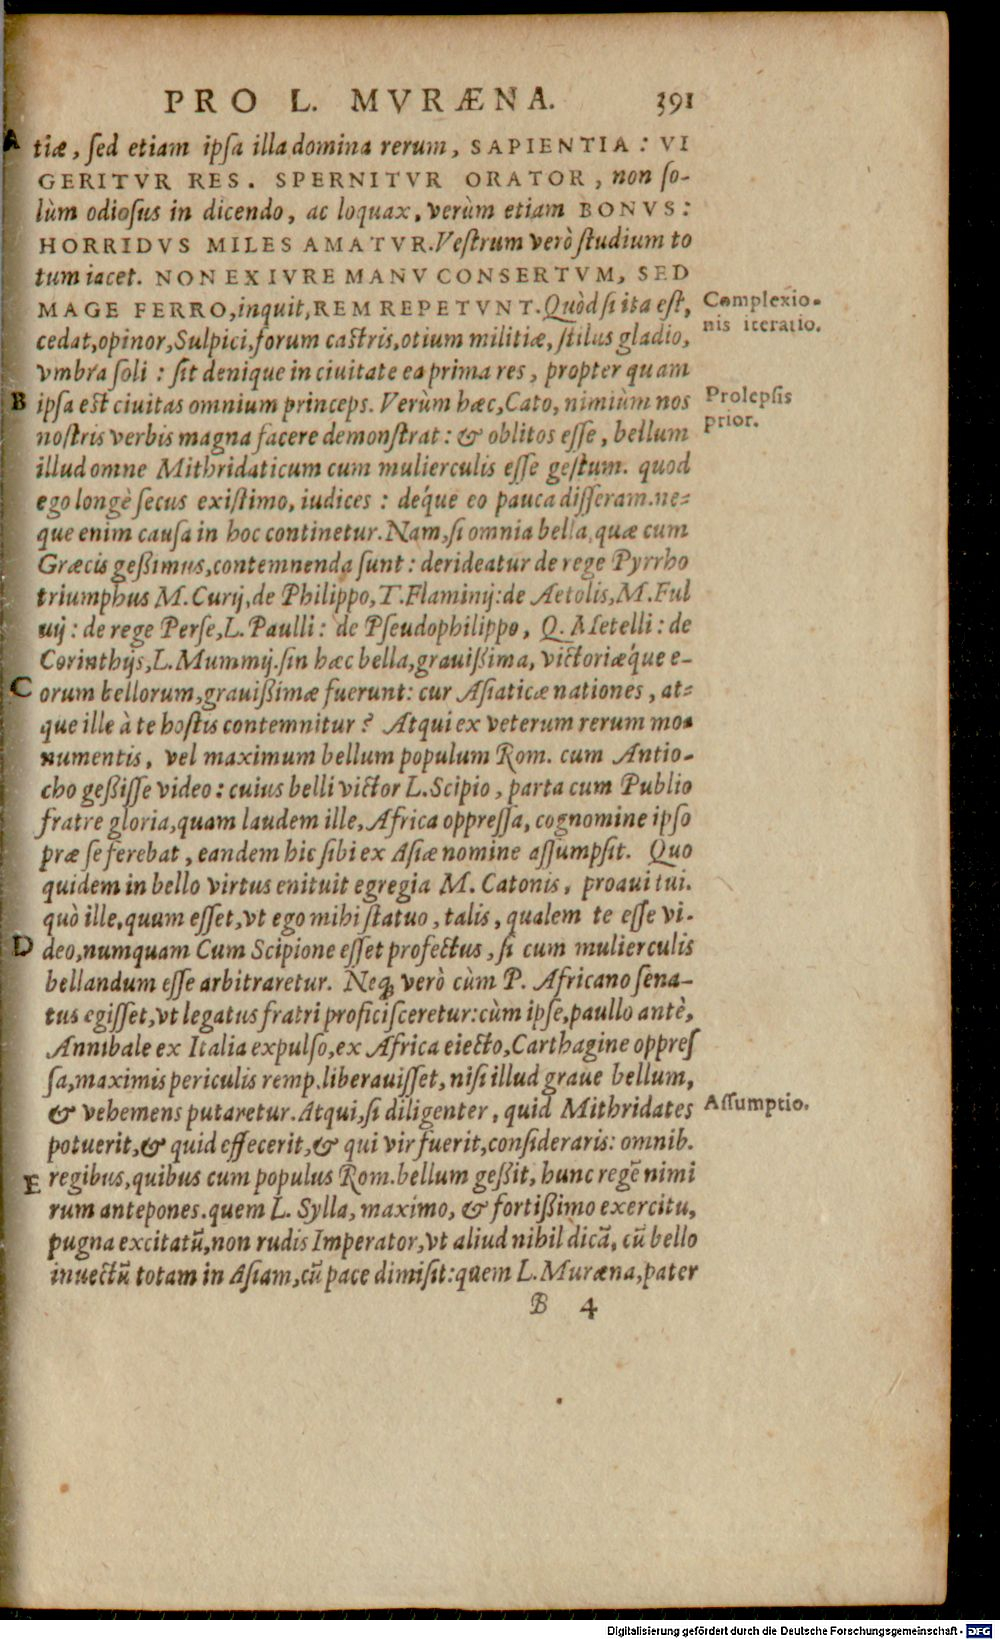 PRO L. MVRÆNA. 391
A tiæ, ſed etiam ipſa illa domina rerum, SAPIENTIA: VI
GERITVR RES. SPERNITVR ORATOR, non ſo-
lùm odioſus in dicendo, ac loquax, verùm etiam BONVS:
HORRIDVS MILES AMATVR. Veſtrum verò ſtudium to
tum iacet. NON EX IVRE MANV CONSERTVM, SED
MAGE FERRO, inquit, REM REPETVNT. Quòd ſi ita eſt,
Complexio-
nis iteratio.
cedat, opinor, Sulpici, forum caſtris, otium militiæ, ſtilus gladio,
vmbra ſoli: ſit denique in ciuitate ea prima res, propter quam
B ipſa eſt ciuitas omnium princeps. Verùm hæc, Cato, nimiùm nos
Prolepſis
prior.
noſtris verbis magna facere demonſtrat: & oblitos eſſe, bellum
illud omne Mithridaticum cum mulierculis eſſe geſtum. quod
ego longè ſecus exiſtimo, iudices: deq́ue eo pauca diſſeram. ne-
que enim cauſa in hoc continetur. Nam, ſi omnia bella, quæ cum
Græcis geßimus, contemnenda ſunt: derideatur de rege Pyrrho
triumphus M. Curij, de Philippo, T. Flaminij: de Aetolis, M. Ful
uij: de rege Perſe, L. Paulli: de Pſeudophilippo, Q. Metelli: de
Corinthijs, L. Mummij. ſin hæc bella, grauißima, victoriæq́ue e-
C orum bellorum, grauißimæ fuerunt: cur Aſiaticæ nationes, at-
que ille à te hoſtis contemnitur? Atqui ex veterum rerum mo-
numentis, vel maximum bellum populum Rom. cum Antio-
cho geßiſſe video: cuius belli victor L. Scipio, parta cum Publio
fratre gloria, quam laudem ille, Africa oppreſſa, cognomine ipſo
præ ſe ferebat, eandem hic ſibi ex Aſiæ nomine aſſumpſit. Quo
quidem in bello virtus enituit egregia M. Catonis, proaui tui.
quò ille, quum eſſet, vt ego mihi ſtatuo, talis, qualem te eſſe vi-
D deo, numquam Cum Scipione eſſet profectus, ſi cum mulierculis
bellandum eſſe arbitraretur. Neq; verò cùm P. Africano ſena-
tus egiſſet, vt legatus fratri proficiſceretur: cùm ipſe, paullo antè,
Annibale ex Italia expulſo, ex Africa eiecto, Carthagine oppreſ
ſa, maximis periculis remp. liberauiſſet, niſi illud graue bellum,
& vehemens putaretur. Atqui, ſi diligenter, quid Mithridates
Aſſumptio.
potuerit, & quid effecerit, & qui vir fuerit, conſideraris: omnib.
E regibus, quibus cum populus Rom. bellum geßit, hunc regē nimi
rum antepones. quem L. Sylla, maximo, & fortißimo exercitu,
pugna excitatū, non rudis Imperator, vt aliud nihil dicā, cū bello
inuectū totam in Aſiam, cū pace dimiſit: quem L. Muræna, pater
B 4
Digitalisierung gefördert durch die Deutsche Forschungsgemeinschaft - DFG